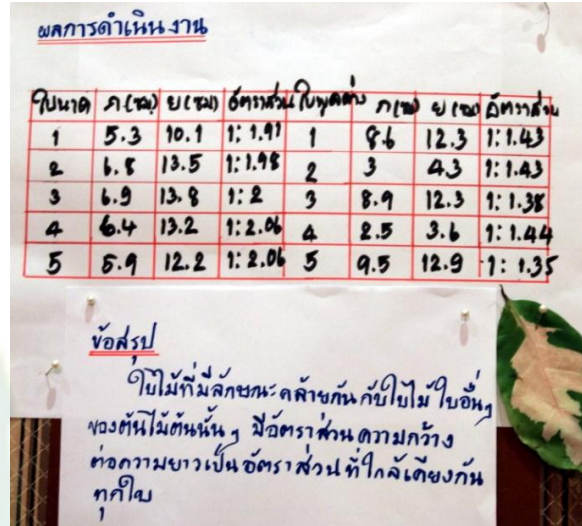 ผลการดำเนินงาน
ใบนาค ก(ซม) ย(ซม) อัตราส่วน ใบพุดด่าง ก(ซม) ย(ซม) อัตราส่วน
1 5.3 10.1 1:1.91 1 8.6 12.3 1:1.43
2 6.8 13.5 1:1.98 2 3 4.3 1:1.43
3 6.9 13.8 1:2 3 8.9 12.3 1:1.38
4 6.4 13.2 1:2.06 4 2.5 3.6 1:1.44
5 5.9 12.2 1:2.06 5 9.5 12.9 1:1.35
ข้อสรุป
ใบไม้ที่มีลักษณะคล้ายกันกับใบไม้ใบอื่นๆ
ของต้นไม้ต้นนั้นๆ มีอัตราส่วนความกว้าง
ต่อความยาวเป็นอัตราส่วนที่ใกล้เคียงกัน
ทุกใบ